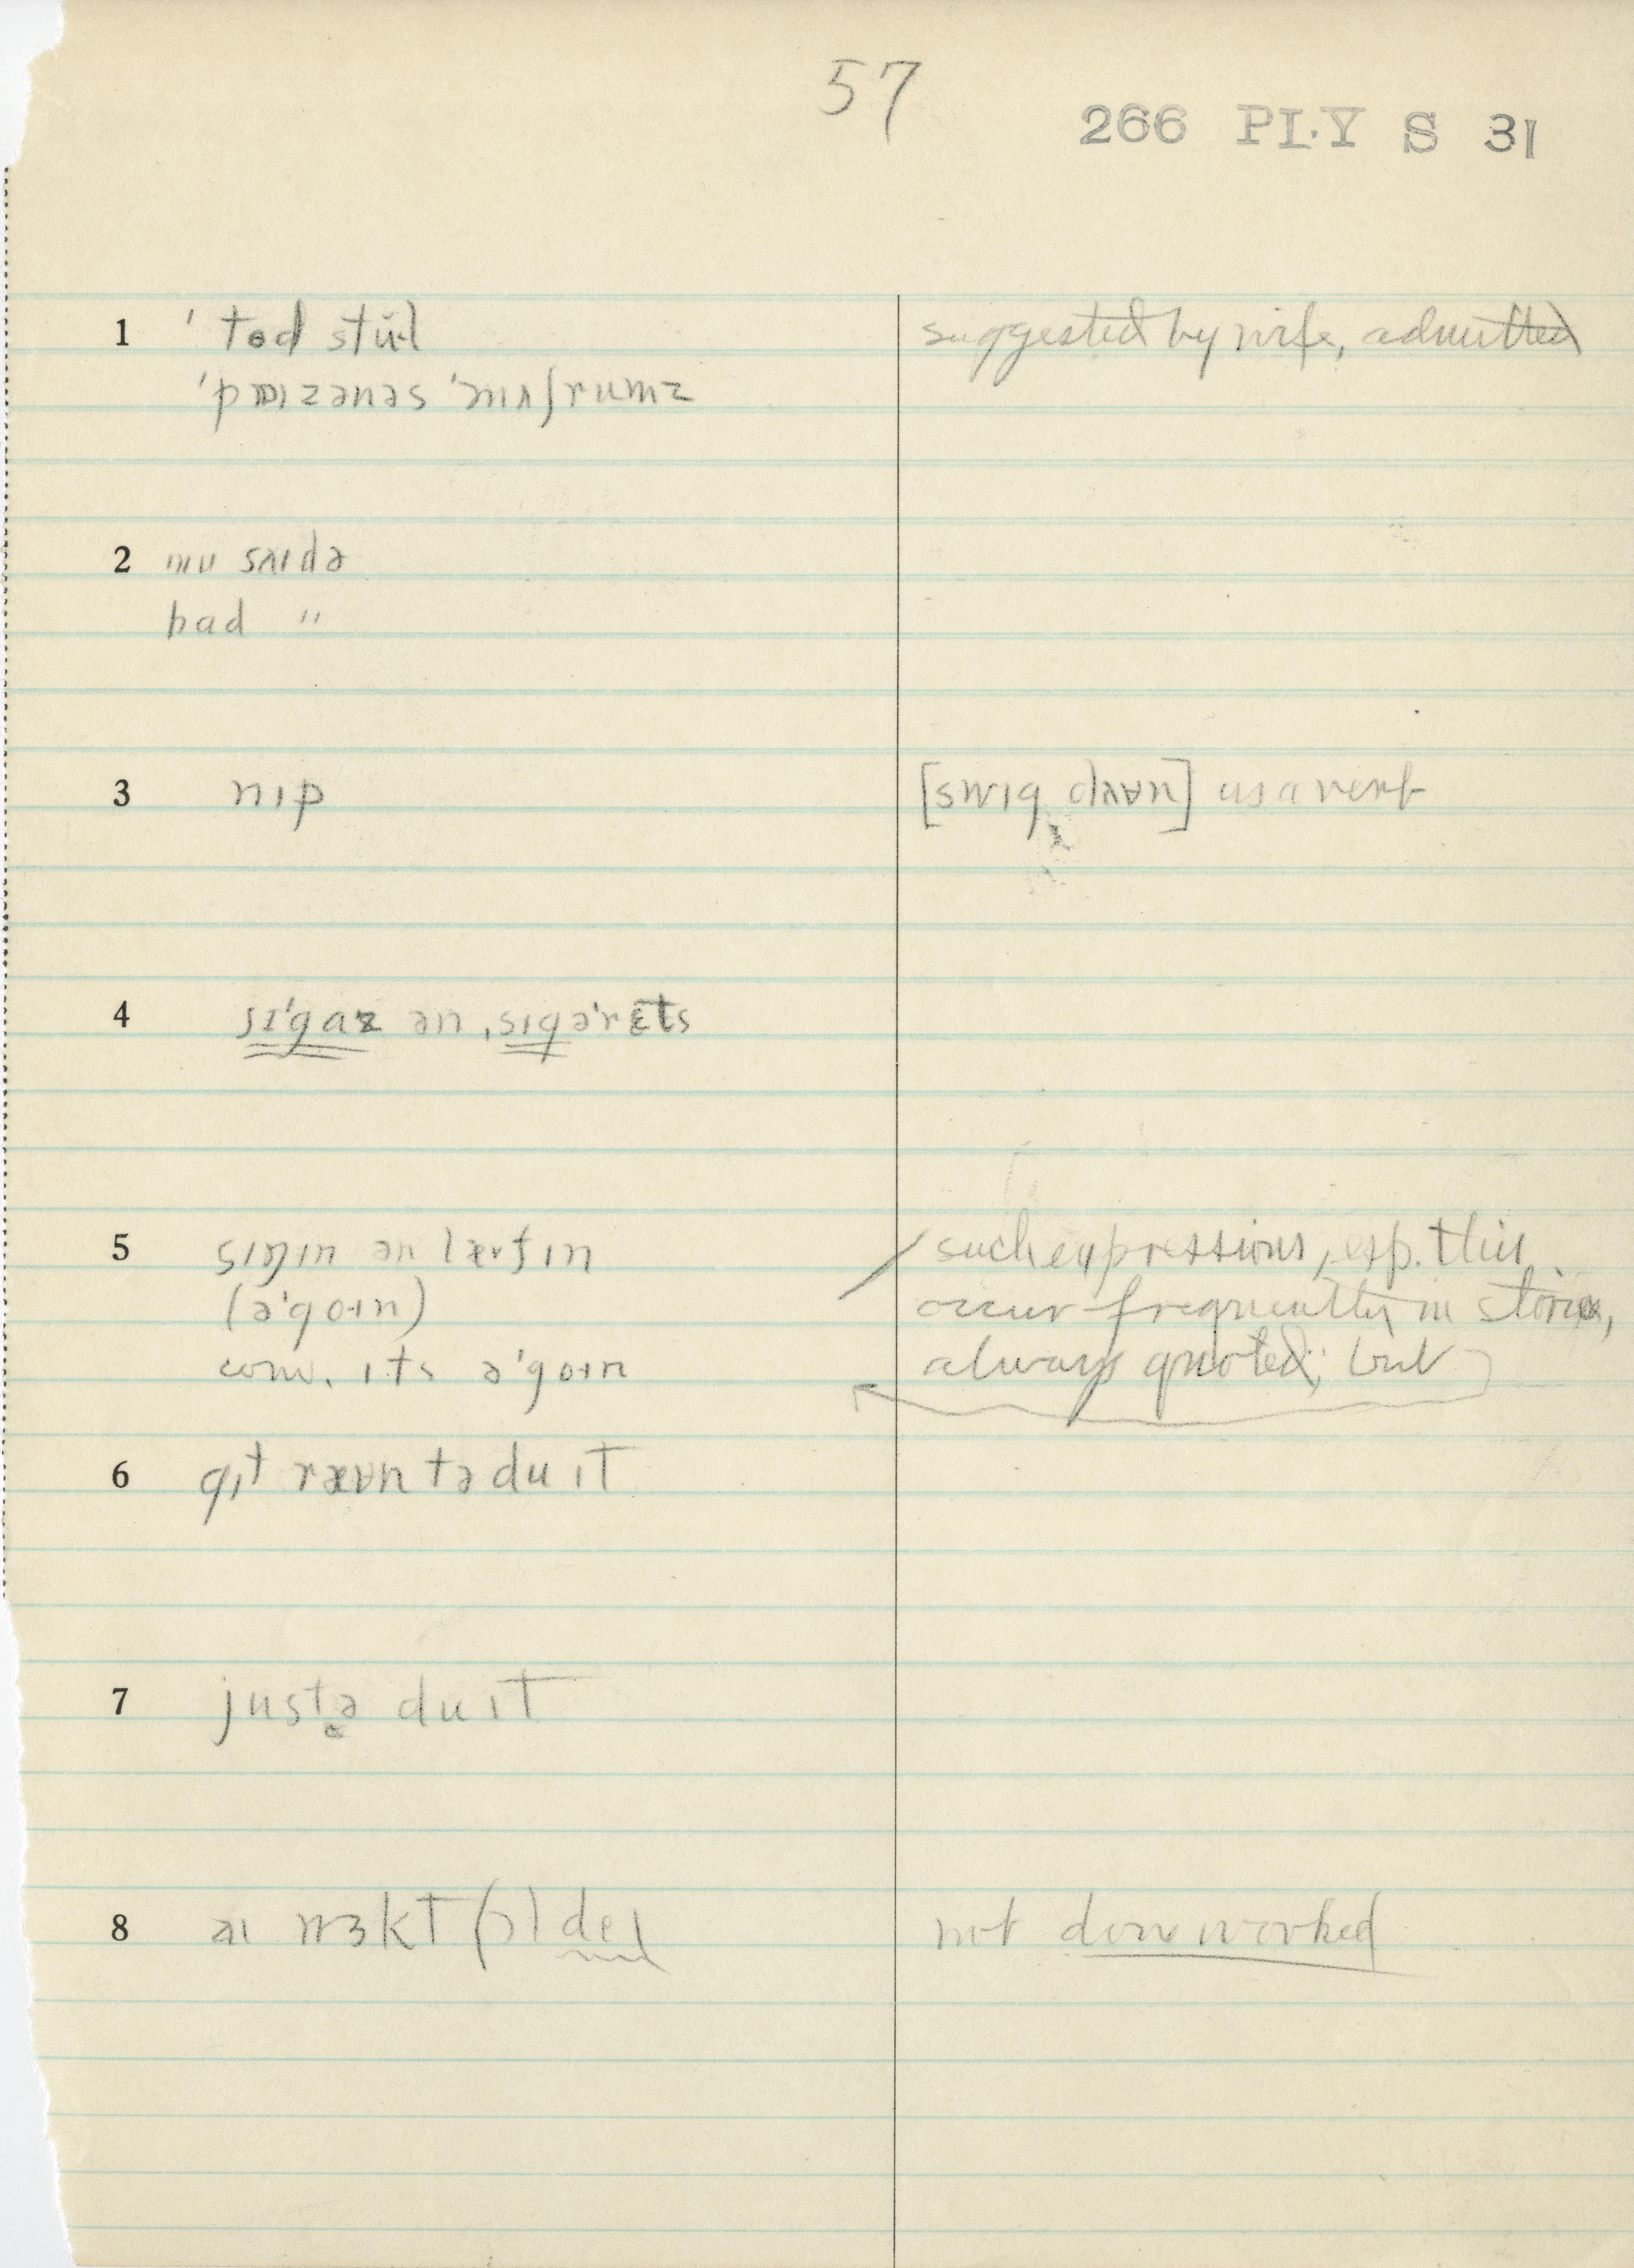 57
266 PLY S 31
1 ' tod stul suggested by wife, admitted
'pɔɪzənəs 'mʌʃrumz
2 nu saɪdə
had "
3 nɪp [swɪg daʊn] as a verb
4 sɪ'gaz ən ,sɪgə'rɛts
5 sɪŋɪn ən læfɪn such expressions, esp. this,
(ə'goɪn) occur frequently in stories,
conv. ɪts ə'goɪn always quoted; but
6 gɪt ræʊn tə du ɪt
7 justə du ɪt
8 aɪ wɜkt (ɔ)l de not done worked